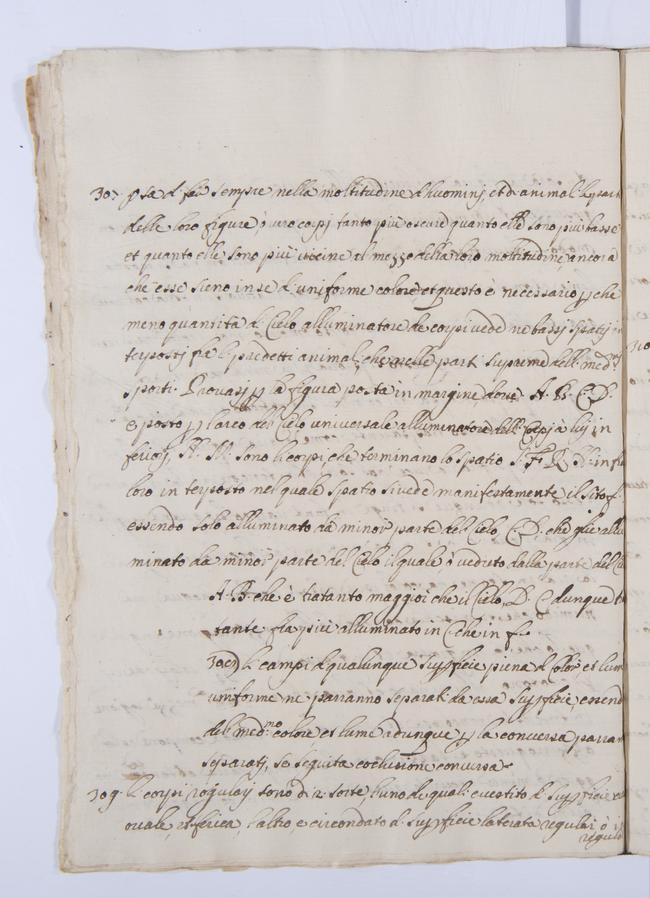 307 sempre nella moltitudine d'huominj, et di animali le parti
delle loro figure, ò vero corpj tanto più oscure quanto esse sono più basse
et quanto elle sono più vicine al mezzo della loro moltitudine ancora
che esse sieno in se d'uniforme colore et questo è necessario che
meno quantità di Cielo alluminatore de corpi vede ne bassj spatij in
terpostj fra li predetti animali, che nelle parti supreme delli med.mi
sporti. Provasj la figura posta in margine dove A. B. C. D.
è posto l'arco del Cielo universale alluminatore delli Corpj à luj in
feriorj, N. M. sono li corpi, che terminano lo spatio
loro in terposto nel quale spatio si vede manifestamente il sito f.
essendo solo alluminato da minor parte del Cielo, C D, che
minato da minor parte del Cielo il quale è veduto dalla parte del
A. B. che è maggior che il Cielo, D. C dunque
tante fia più alluminato in che in f.
308 li campi di qualunque superficie piena di color et lume
uniforme ne parranno separati da essa superficie essendo
del med.mo colore et lume adunque la conversa parran
separatj, se seguita coclusione conversa
309. li corpi regularj sono di 2 sorte, l'uno de quali è vestito di superficie
ovale, sferica, l'altro, è circondato di superficie laterata regulari ò